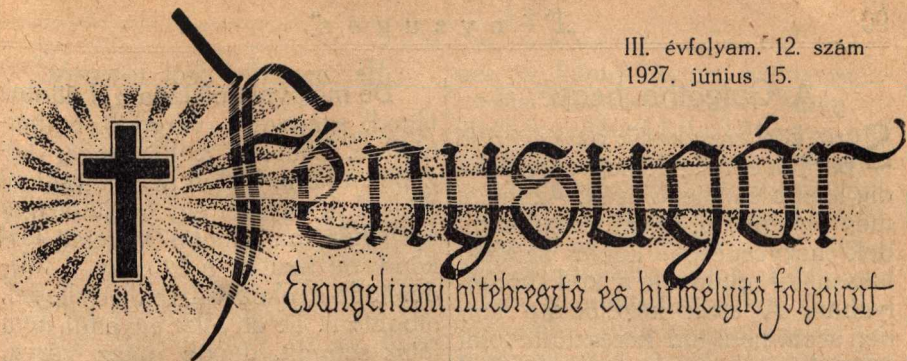 III. évfolyam. 12. szám
1927. június 15.
Fénysugár
Evangéliumi hitébresztő és hitmélyítő folyóirat